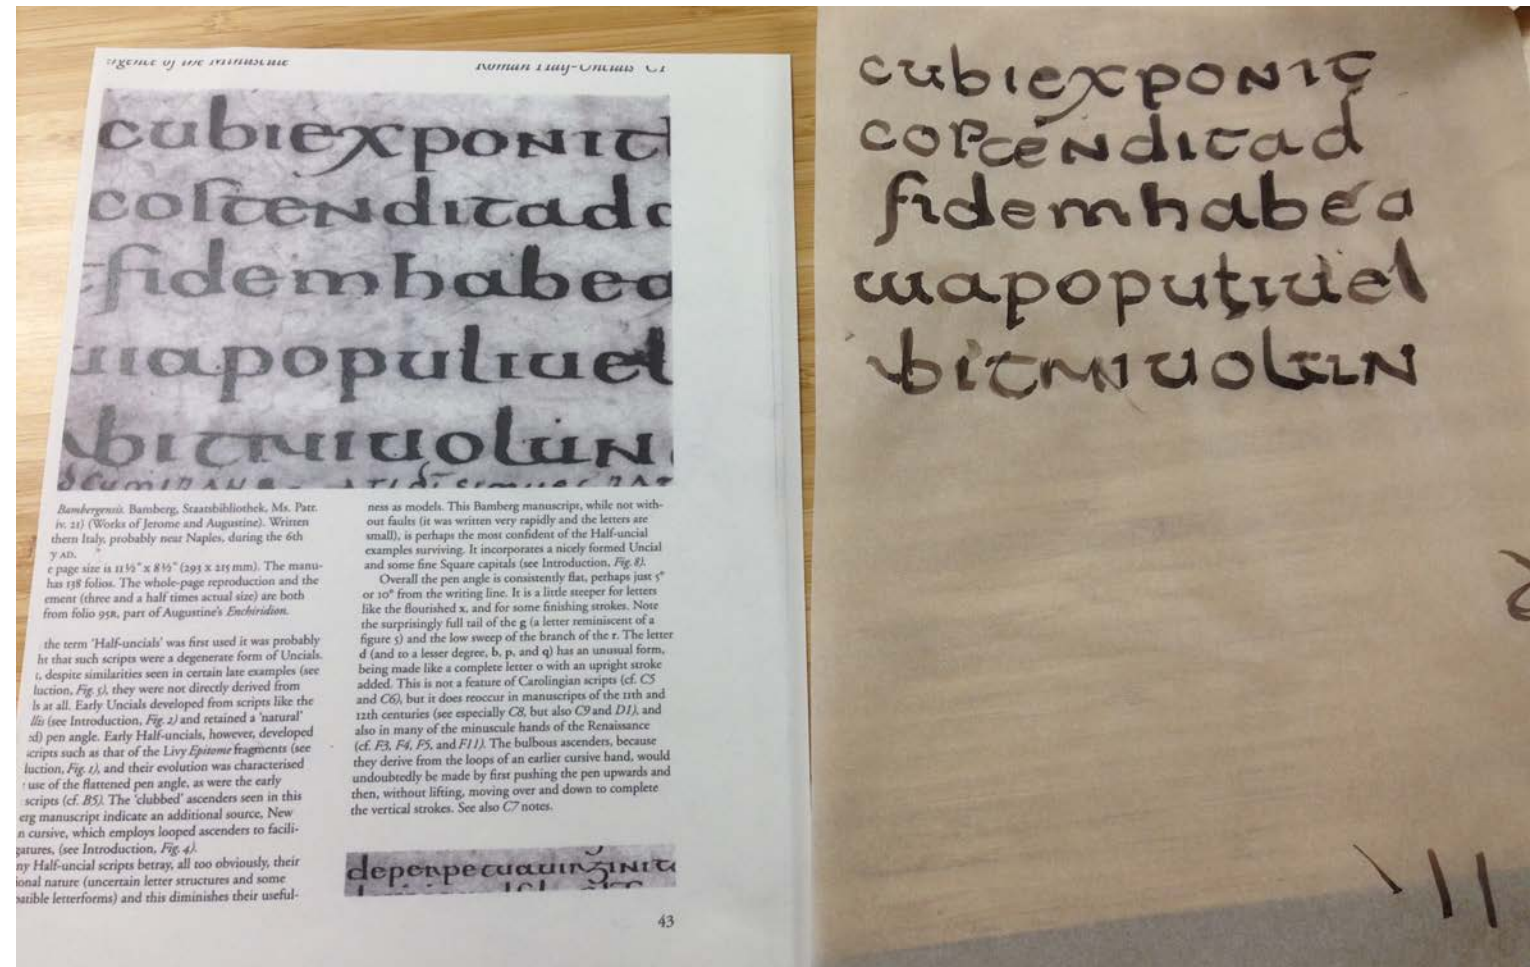 rgence of the Minuscule
Roman Half-Uncials C1
cubiexponit
costenditado
fidemhabea
uapopuliuel
bitniuolun
Bambergensis. Bamberg, Staatsbibliothek, Ms. Patr.
iv. 21) (Works of Jerome and Augustine). Written
thern Italy, probably near Naples, during the 6th
y AD.
e page size is 11½" x 8½" (293 x 215 mm). The manu-
has 138 folios. The whole-page reproduction and the
ement (three and a half times actual size) are both
from folio 95R, part of Augustine's Enchiridion.
the term 'Half-uncials' was first used it was probably
ht that such scripts were a degenerate form of Uncials.
, despite similarities seen in certain late examples (see
luction, Fig. 5), they were not directly derived from
ls at all. Early Uncials developed from scripts like the
llis (see Introduction, Fig. 2) and retained a 'natural'
ed) pen angle. Early Half-uncials, however, developed
scripts such as that of the Livy Epitome fragments (see
luction, Fig. 1), and their evolution was characterised
use of the flattened pen angle, as were the early
scripts (cf. B5). The 'clubbed' ascenders seen in this
erg manuscript indicate an additional source, New
n cursive, which employs looped ascenders to facili-
gatures, (see Introduction, Fig. 4).
ny Half-uncial scripts betray, all too obviously, their
ional nature (uncertain letter structures and some
patible letterforms) and this diminishes their useful-
ness as models. This Bamberg manuscript, while not with-
out faults (it was written very rapidly and the letters are
small), is perhaps the most confident of the Half-uncial
examples surviving. It incorporates a nicely formed Uncial
and some fine Square capitals (see Introduction, Fig. 8).
Overall the pen angle is consistently flat, perhaps just 5°
or 10° from the writing line. It is a little steeper for letters
like the flourished x, and for some finishing strokes. Note
the surprisingly full tail of the g (a letter reminiscent of a
figure 5) and the low sweep of the branch of the r. The letter
d (and to a lesser degree, b, p, and q) has an unusual form,
being made like a complete letter o with an upright stroke
added. This is not a feature of Carolingian scripts (cf. C5
and C6), but it does reoccur in manuscripts of the 11th and
12th centuries (see especially C8, but also C9 and D1), and
also in many of the minuscule hands of the Renaissance
(cf. F3, F4, F5, and F11). The bulbous ascenders, because
they derive from the loops of an earlier cursive hand, would
undoubtedly be made by first pushing the pen upwards and
then, without lifting, moving over and down to complete
the vertical strokes. See also C7 notes.
43
cubiexponit
costenditad
fidemhabea
uapopuliuel
bitniuolun